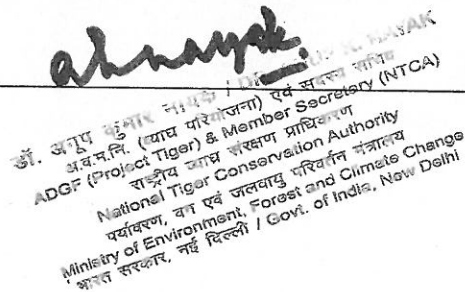 ahnayak
डॉ. अनूप कुमार नायक / DR. ANUP K. NAYAK
अ.व.म.नि. (व्याघ्र परियोजना) एवं सदस्य सचिव
ADGF (Project Tiger) & Member Secretary (NTCA)
राष्ट्रीय व्याघ्र संरक्षण प्राधिकरण
National Tiger Conservation Authority
पर्यावरण, वन एवं जलवायु परिवर्तन मंत्रालय
Ministry of Environment, Forest and Climate Change
भारत सरकार, नई दिल्ली / Govt. of India, New Delhi